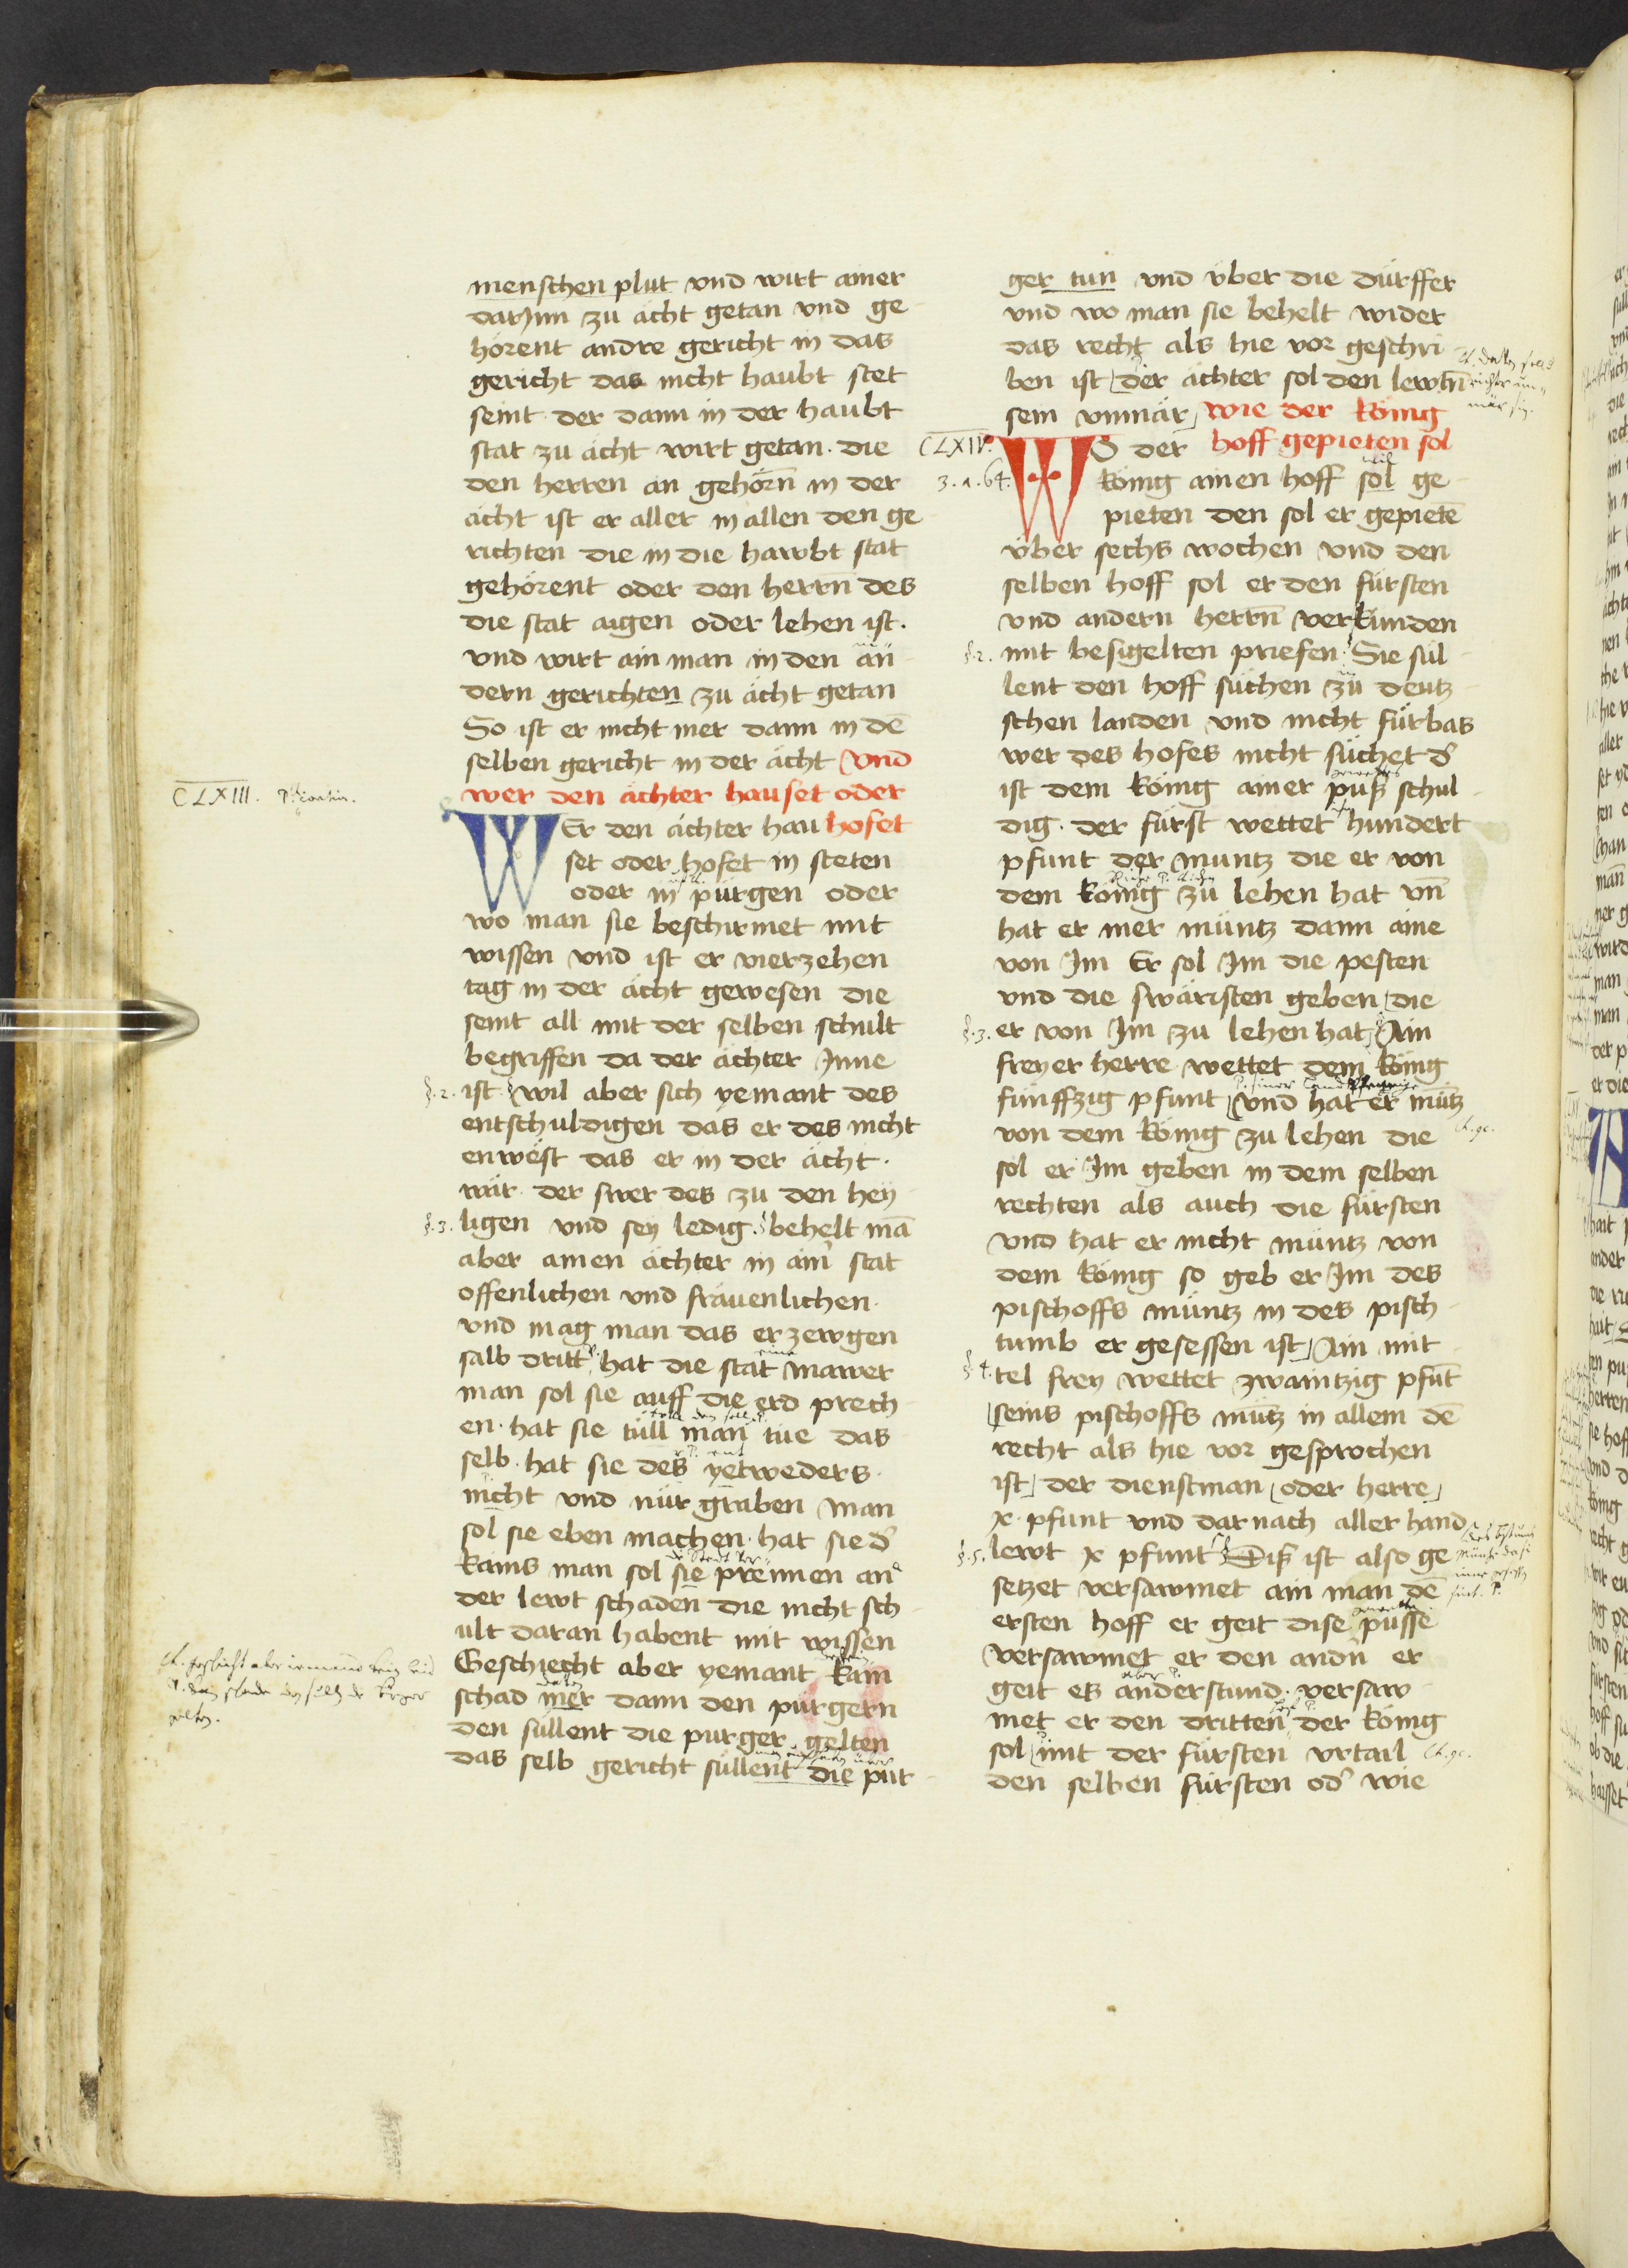 menschen plut vnd wirt ainer
darjnn zu ächt getan vnd ge
hörent andre gericht in das
gericht das nicht haubt stet
seint der dann in der haubt
stat zu ächt wirt getan. die
den herren an gehörn̄ in der
ächt ist er aller in allen den ge
richten die in die hawbt stat
gehörent oder den herrn̄ des
die stat aigen oder lehen ist.
vnd wirt ain man in den än
dern gerichten zu ächt getan
So ist er nicht mer dann in dē
selben gericht in der ächt vnd
CLXIII.
wer den ächter hauset oder
WEr den ächter hau hofet
set oder hofet in steten
oder in pürgen oder
wo man sie beschirmet mit
wissen vnd ist er vierzehen
tag in der ächt gewesen die
seint all mit der selben schult
begriffen da der ächter Inne
§.2. ist wil aber sich yemant des
entschuldigen das er des nicht
enwëst das er in der ächt.
wär der swer des zu den hey
§.3. ligen vnd sey ledig. behelt mā
aber ainen ächter in ain̄ stat
offenlichen vnd fräuenlichen.
vnd mag man das erzewgen
salb dritt hat die stat mawer
man sol sie auff die erd prech
en. hat sie tüll man tüe das
selb. hat sie des yetweders.
nicht vnd nür graben man
sol sie eben machen. hat sie d̓
kains man sol sie prennen an
der lewt schaden die nicht sch
ult daran habent mit wissen
Geschiecht aber yemant kain
schad mer dann den pürgern
den süllent die purger gelten
das selb gericht süllent die pür
ger tun vnd über die dürffer
vnd wo man sie behelt wider
das recht als hie vor geschri
ben ist der ächter sol den lewtn̄
sein vnmär wie der künig
CLXIV.
WO der hoff gepieten sol
3.a.64.
künig ainen hoff sol ge
pieten den sol er gepietē
über sechs wochen vnd den
selben hoff sol er den fürsten
vnd andern herrn̄ verkünden
§.2. mit besigelten priefen. Sie sül
lent den hoff süchen zü deutz
schen landen vnd nicht fürbas
wer des hofes nicht süchet d̓
ist dem künig ainer puß schul
dig. der fürst wettet hundert
pfunt der muntz die er von
dem künig zü lehen hat vn̄
hat er mer müntz dann aine
von Im Er sol Im die pesten
vnd die swäristen geben die
§.3. er von Im zu lehen hat Ain
freyer herre wettet dem künig
fünffzig pfunt vnd hat er mütz
von dem künig zu lehen die
sol er Im geben in dem selben
rechten als auch die fürsten
vnd hat er nicht müntz von
dem künig so geb er Im des
pischoffs müntz in des pisch
tumb er gesessen ist Ain mit
§.4. tel frey wettet zwaintzig pfūt
seins pischoffs mütz in allem dē
recht als hie vor gesprochen
ist der dienstman oder herre
x. pfunt vnd dar nach aller hand
§.5. lewt x pfunt Diß ist also ge
setzet versawmet ain man dē
ersten hoff er geit dise püsse
versawmet er den andn̄ er
geit es anderstund. versaw
met er den dritten der künig
sol mit der fürsten vrtail
den selben fürsten od̓ wie